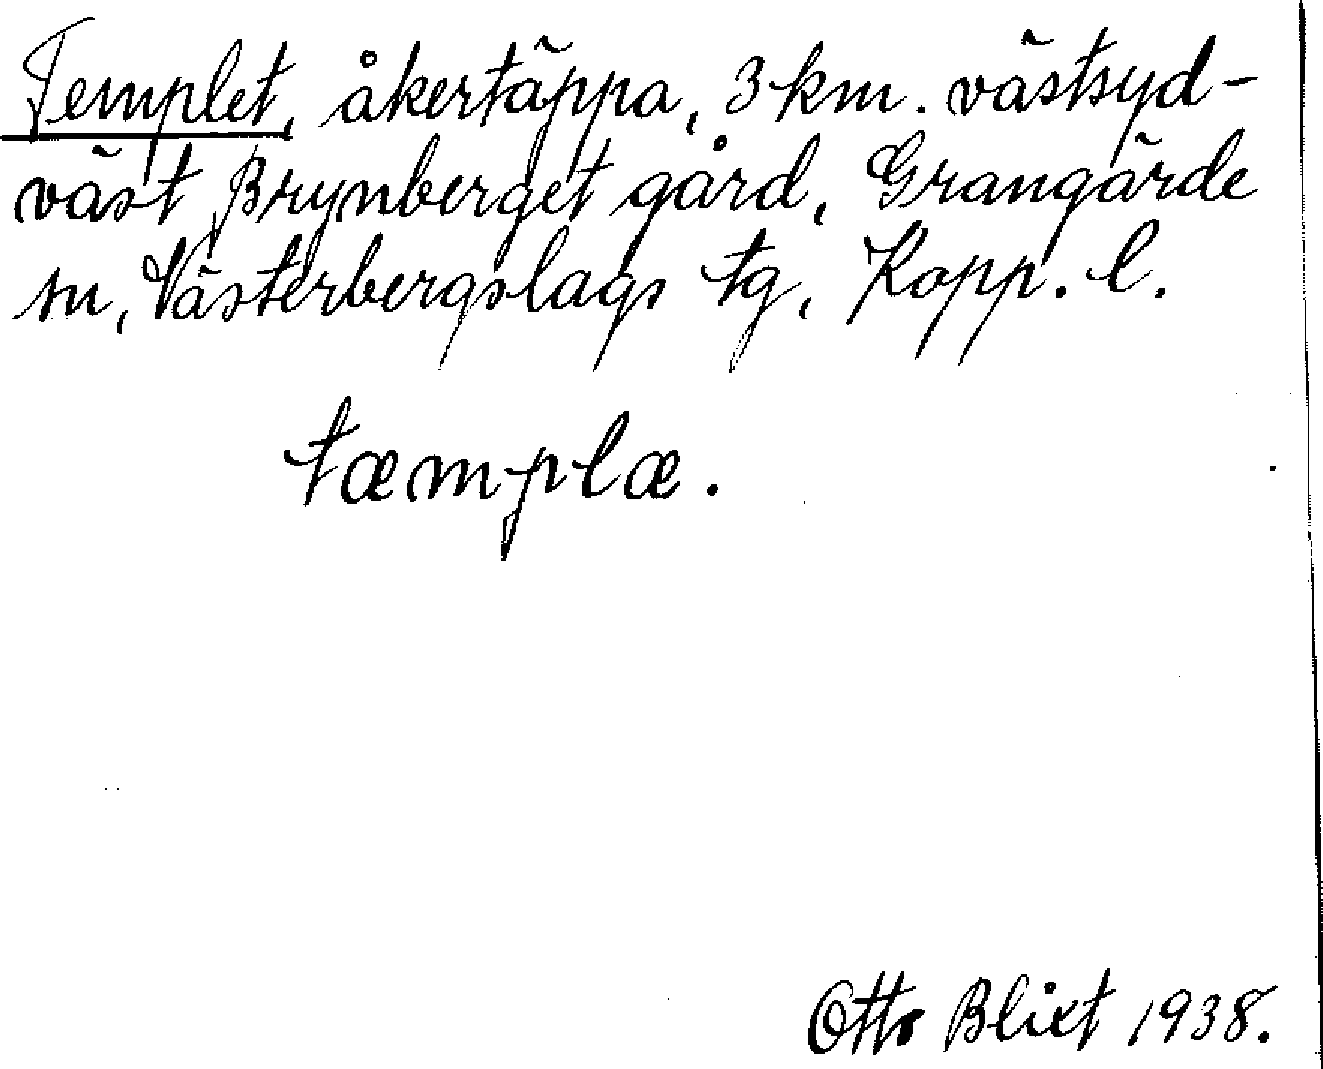 Templet, åkertäppa, 3 km. västsyd-
väst Brynberget gård, Grangärde
sn, Västerbergslags tg, Kopp. l.
tæmplæ.
Otto Blixt 1938.